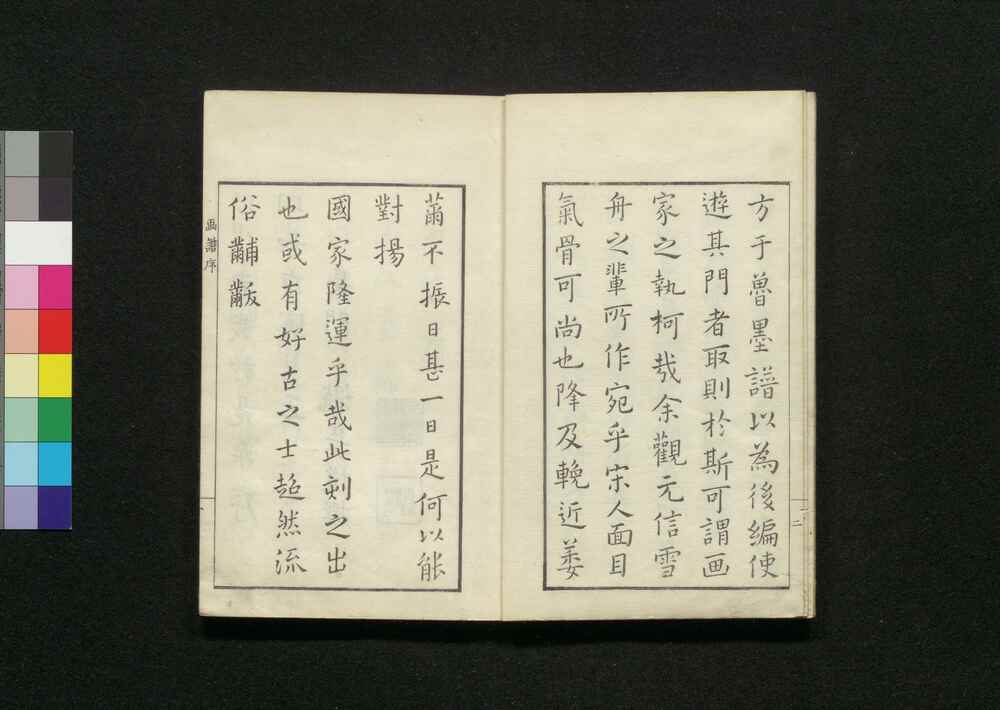 方于魯墨譜以為後編使
遊其門者取則於斯可謂画
家之執柯哉余觀元信雪
舟之輩所作宛乎宋人面目
氣骨可尚也降及輓近萎
二
薾不振日甚一日是何以能
對揚
國家隆運乎哉此刻之出
也或有好古之士超然流
俗黼黻
画譜序